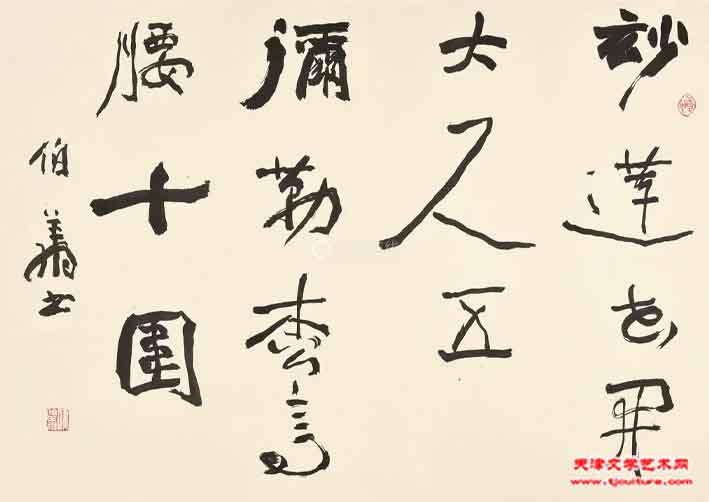 玅蓮花開
大人五
彌勒枀高
腰十圍
伯翔书
天津文学艺术网
www.tjculture.com